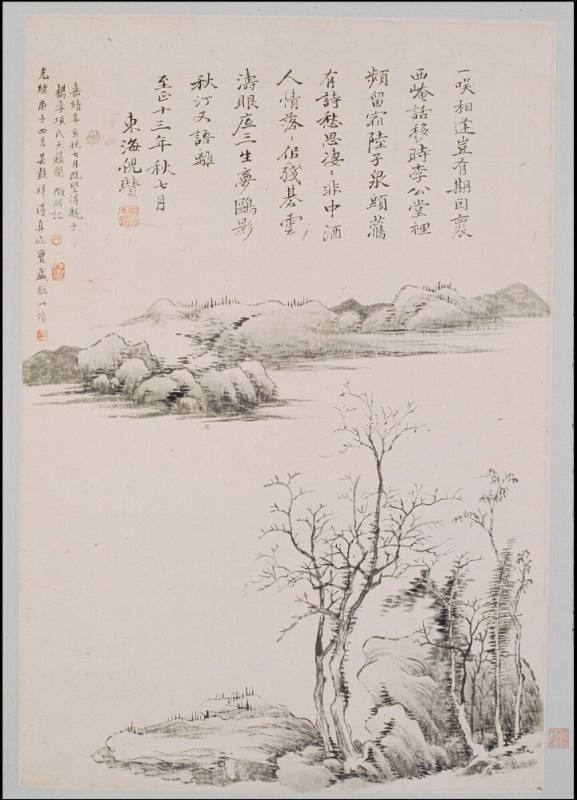 一咲相逢豈有期回裏
西崦話移時李公堂裡
頻留宿陸子泉頭舊
有詩愁思凄〻非中酒
人情落〻似殘碁雲
濤眼底三生夢鷗影
秋汀又語離
至正十三年秋七月
東海倪瓚
嘉靖辛亥秋七月既望得觀于
檇李項氏天籟閣 徵明記
光緒庚子四月吳穀祥得真迹寶盧臨